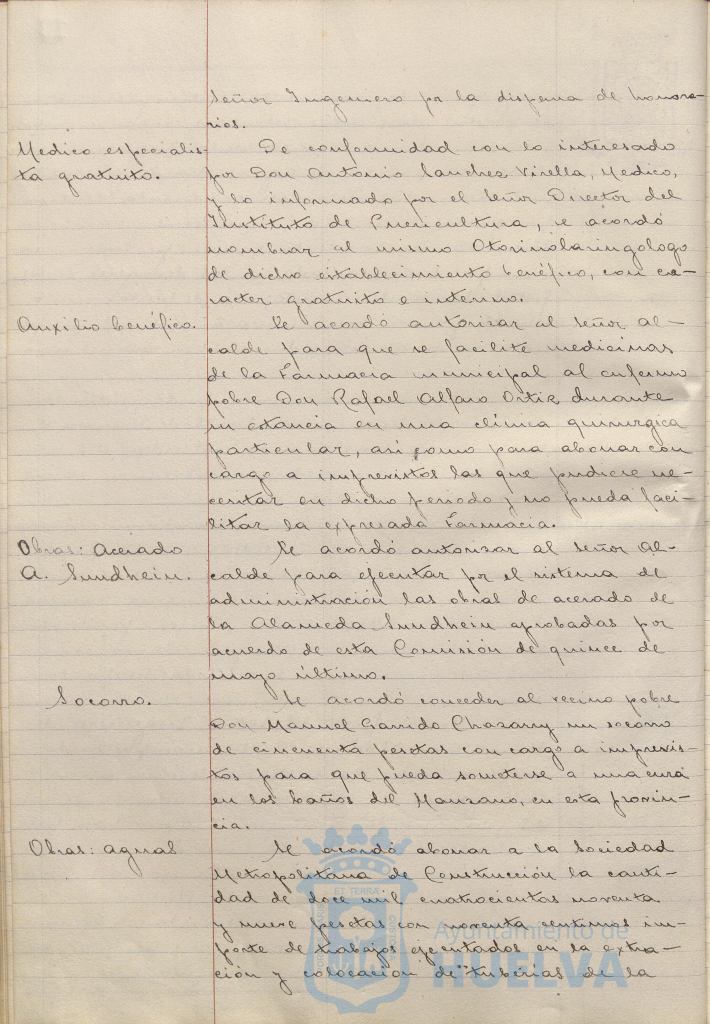 Señor Ingeniero por la dispensa de honora-
rios.
Medico especialis-
ta gratuito.
De conformidad con lo interesado
por Don Antonio Sanchez Virella, Medico,
y lo informado por el Señor Director del
Instituto de Puericultura, se acordó
nombrar al mismo Otorinolaringologo
de dicho establecimiento benéfico, con ca-
racter gratuito e interino.
Auxilio benéfico.
Se acordó autorizar al Señor al-
calde para que se facilite medicinas
de la Farmacia municipal al enfermo
pobre Don Rafael Alfaro Ortiz durante
su estancia en una clínica quirurgica
particular, asi como para abonar con
cargo a imprevistos las que pudiere ne-
cesitar en dicho periodo y no pueda faci-
litar la expresada Farmacia.
Obras: Acerado
A. Sundheim.
Se acordó autorizar al Señor Al-
calde para ejecutar por el sistema de
administración las obras de acerado de
la Alameda Sundheim aprobadas por
acuerdo de esta Comisión de quince de
mayo último.
Socorro.
Se acordó conceder al vecino pobre
Don Manuel Garrido un socorro
de cincuenta pesetas con cargo a imprevis-
tos para que pueda someterse a una cura
en los baños del Manzano, en esta provin-
cia.
Obras: aguas
Se acordó abonar a la Sociedad
Metropolitana de Construcción la canti-
dad de doce mil cuatrocientas noventa
y nueve pesetas con noventa centimos im-
porte de trabajos ejecutados en la extra-
ción y colocación de tuberias de la
ET TERRA
Ayuntamiento de
HUELVA